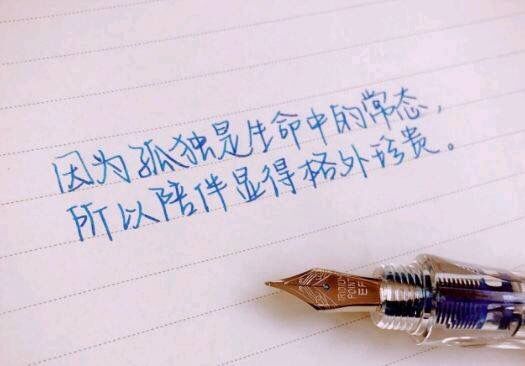 因为孤独是生命中的常态，
所以陪伴显得格外珍贵。
IRIDIUM
POINT
EF